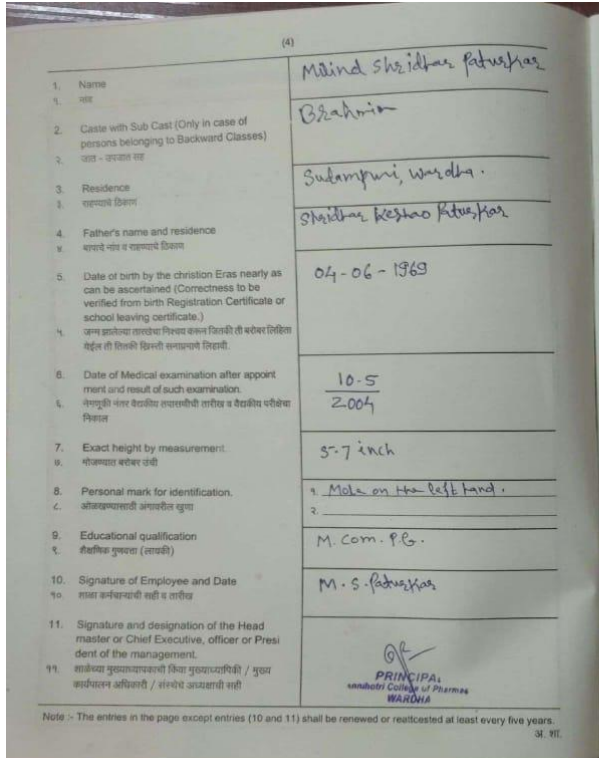 (4)
1. Name
Milind Shridhar Paturkar
१. नांव
2. Caste with Sub Cast (Only in case of
persons belonging to Backward Classes)
Brahmin
२. जात - उपजात सह
3. Residence
Sudampuri, Wardha.
३. राहण्याचे ठिकाण
4. Father's name and residence
Shridhar Keshao Paturkar
४. बापाचे नांव व राहण्याचे ठिकाण
5. Date of birth by the christion Eras nearly as
can be ascertained (Correctness to be
verified from birth Registration Certificate or
school leaving certificate.)
04-06-1969
५. जन्म झालेल्या तारखेचा निश्चय करून जितकी ती बरोबर लिहिता
येईल ती तितकी ख्रिस्ती सनाप्रमाणे लिहावी.
6. Date of Medical examination after appoint
ment and result of such examination.
10-5
2004
६. नेमणूकी नंतर वैद्यकीय तपासणीची तारीख व वैद्यकीय परीक्षेचा
निकाल
7. Exact height by measurement.
5-7 inch
७. मोजण्यात बरोबर उंची
8. Personal mark for identification.
१. Mole on the left hand.
८. ओळखण्यासाठी अंगावरील खुणा
२.
9. Educational qualification
M.Com. P.G.
९. शैक्षणिक गुणवत्ता (लायकी)
10. Signature of Employee and Date
M.S.Paturkar
१०. शाळा कर्मचाऱ्यांची सही व तारीख
11. Signature and designation of the Head
master or Chief Executive, officer or Presi
dent of the management.
११. शाळेच्या मुख्याध्यापकाची किंवा मुख्याध्यापिकी / मुख्य
कार्यपालन अधिकारी / संस्थेचे अध्यक्षाची सही
PRINCIPAL
College of Pharmacy
WARDHA
Note :- The entries in the page except entries (10 and 11) shall be renewed or reattcested at least every five years.
अ. शा.